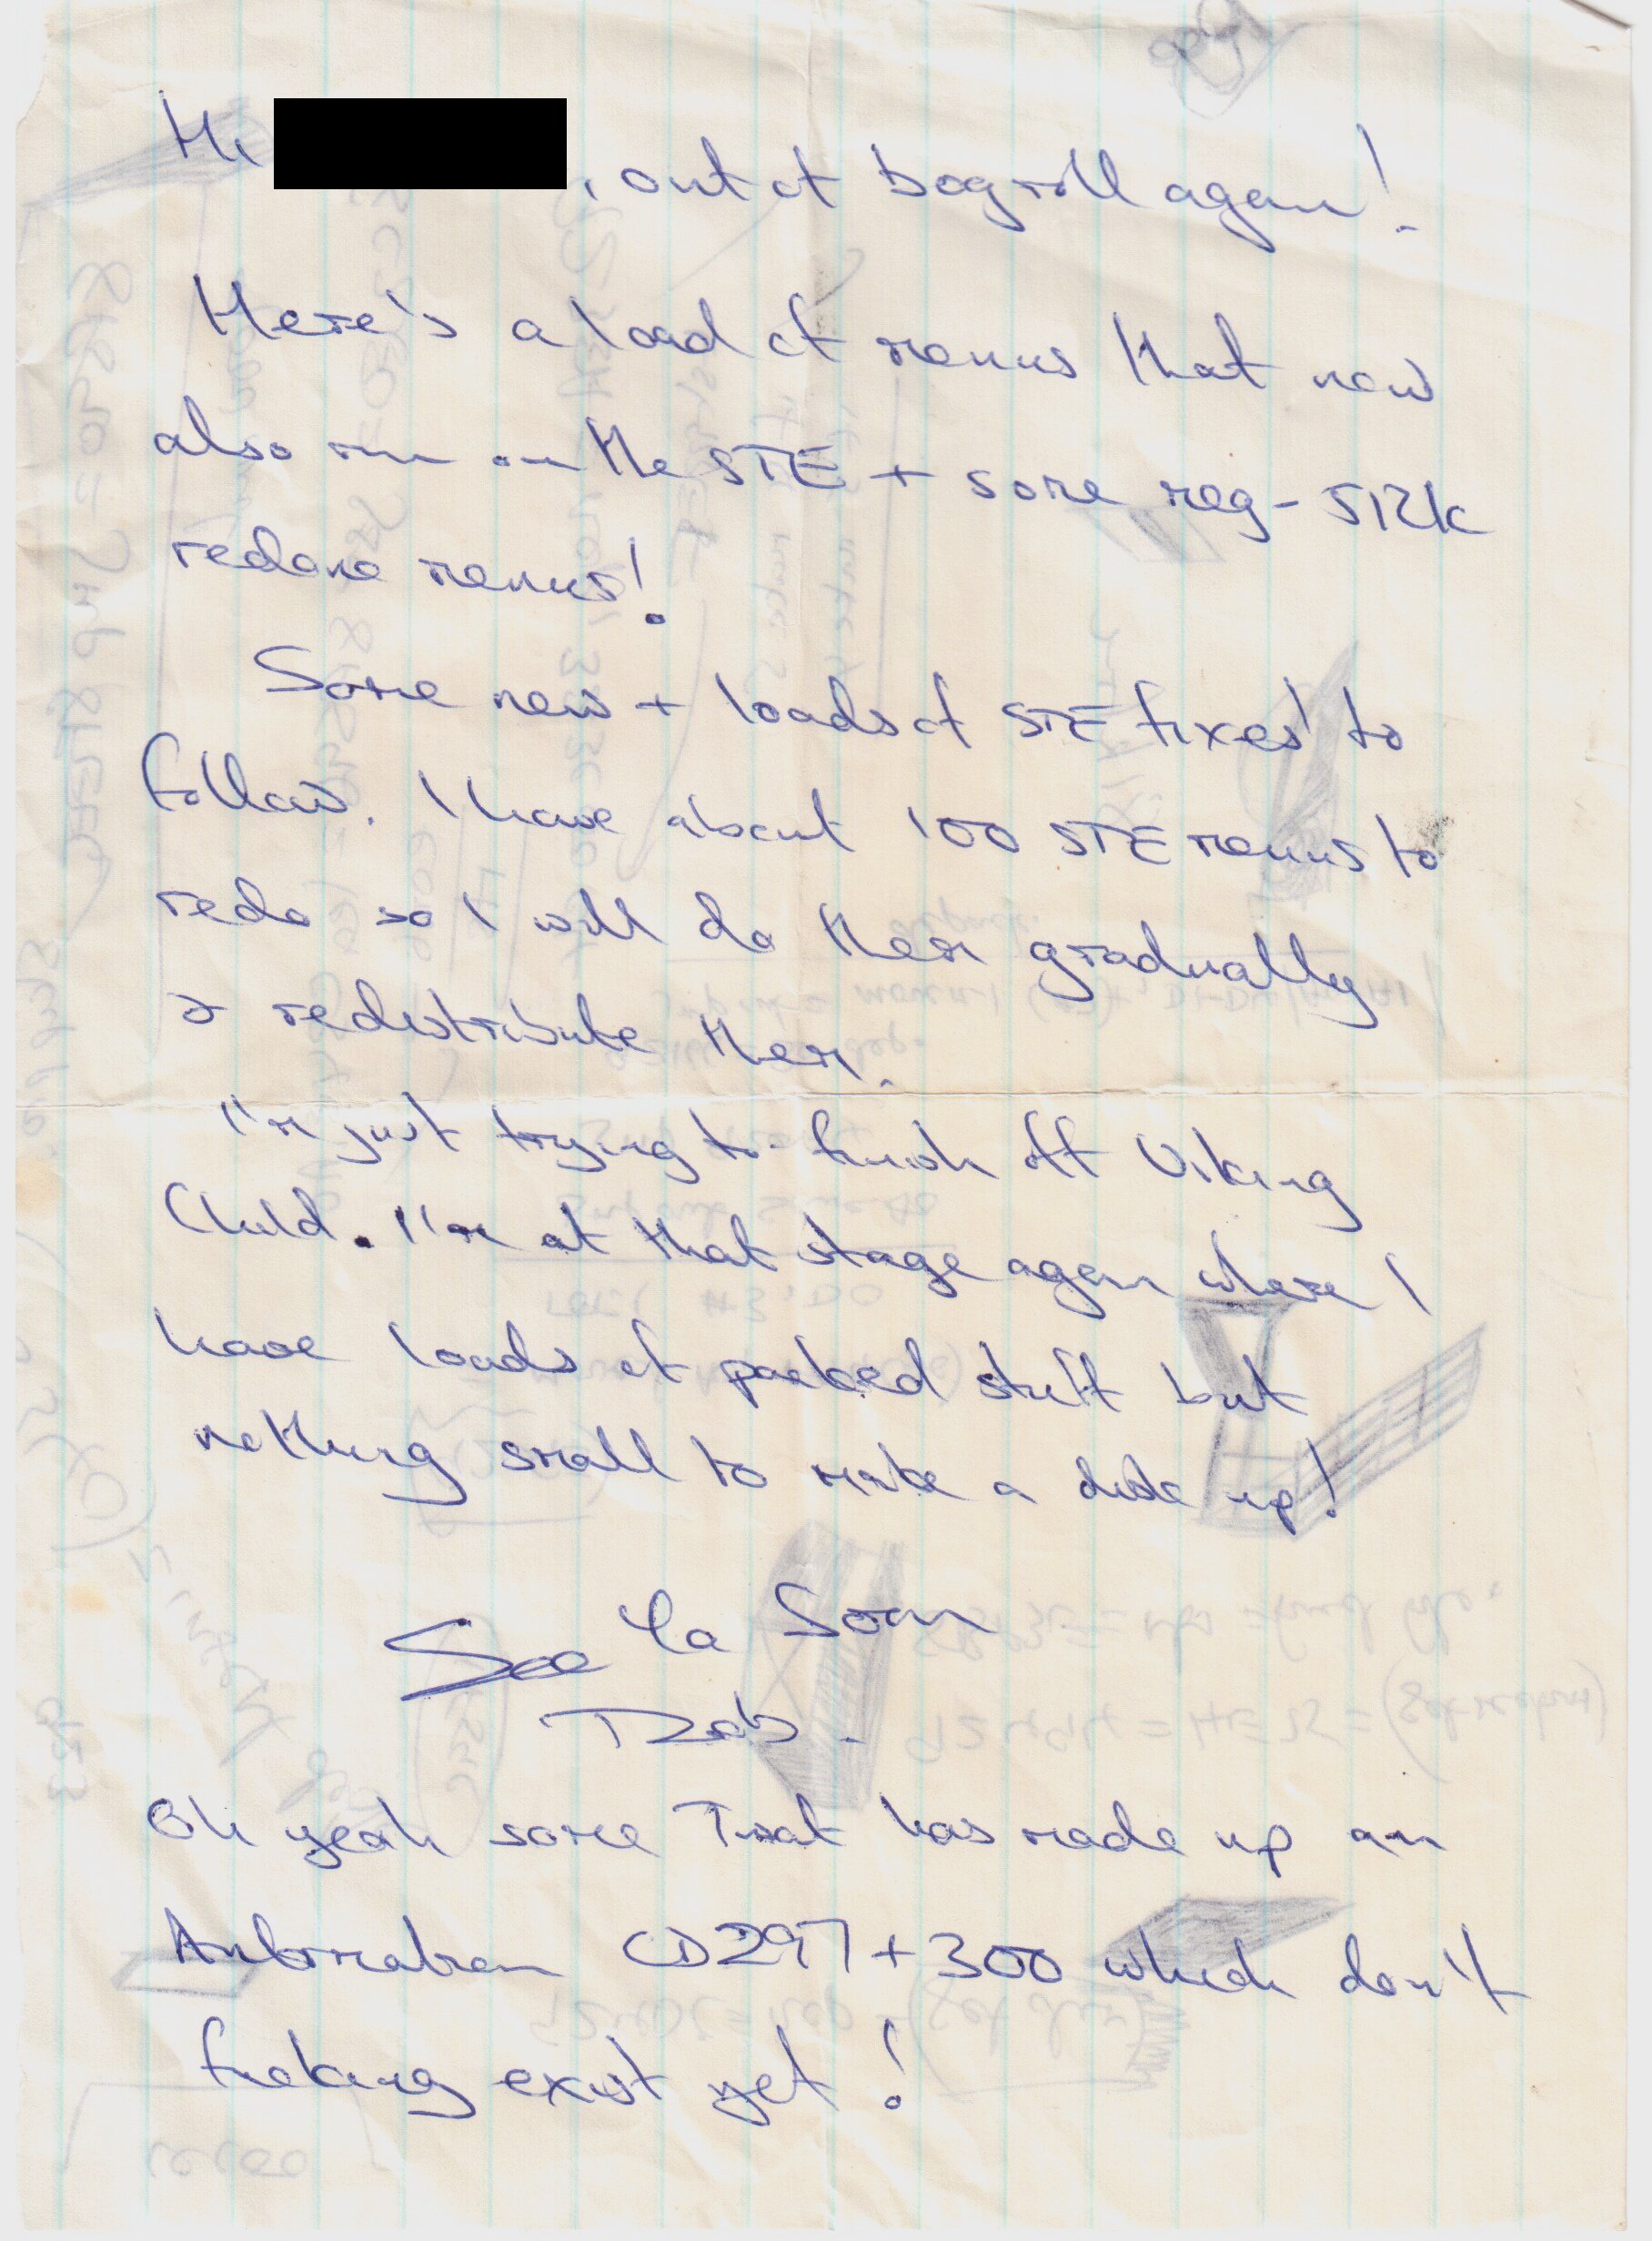 Hi , out of bogroll again!
Here's a load of menus that now
also run on the STE + some meg-512k
redone menus!
Some new + loads of STE fixed to
follow. I have about 100 STE menus to
redo so I will do them gradually
& redistribute them.
I'm just trying to finish off Viking
Child. I'm at that stage again where I
have loads of packed stuff but
nothing small to make a disk up!
See Ya Soon
Rab.
Oh yeah some Twat has made up an
Automation CD297+300 which don't
fucking exist yet!